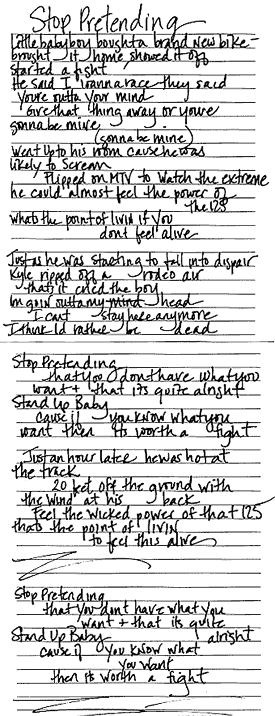 Stop Pretending
Little baby boy bought a brand new bike -
brought it home showed it off
started a fight
He said I wanna race they said
You're outta your mind
Give that thing away or you're
gonna be mine
(gonna be mine)
Went up to his room cause he was
likely to scream
Flipped on MTV to watch the extreme
he could almost feel the power of
the 125
whats the point of livin if you
dont feel alive
Just as he was starting to fall into dispair
Kyle ripped off a rodeo air
thats it cried the boy
Im goin outta my mind head
I cant stay here anymore
I think Id rather be dead
Stop Pretending
that you dont have what you
want + that its quite alright
Stand Up Baby
cause if you know what you
want then its worth a fight
Just an hour later he was hot at
the track
20 feet off the ground with
the wind at his back
Feel the wicked power of that 125
thats the point of livin
to feel this alive
Stop Pretending
that you dont have what you
want + that its quite
Stand Up Baby alright
cause if you know what
you want
then its worth a fight